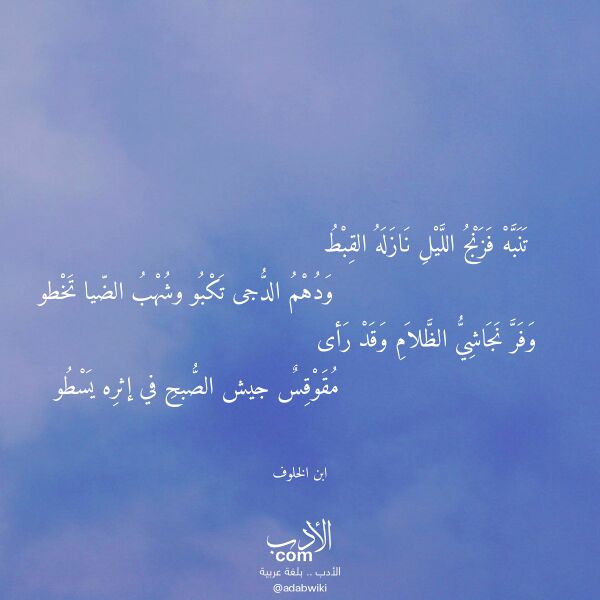 تَنَبَّهْ فَزَنْجُ اللَّيْلِ نَازَلَهُ القِبْطُ
وَدُهْمُ الدُّجى تَكْبُو وشُهْبُ الضّيا تَخْطو
وَفَرَّ نَجَاشِيُّ الظَّلاَمِ وَقَدْ رَأى
مُقَوْقِسٌ جيش الصُّبحِ في إثرِه يَسْطُو
ابن الخلوف
الأدب
com
الأدب .. بلغة عربية
@adabwiki